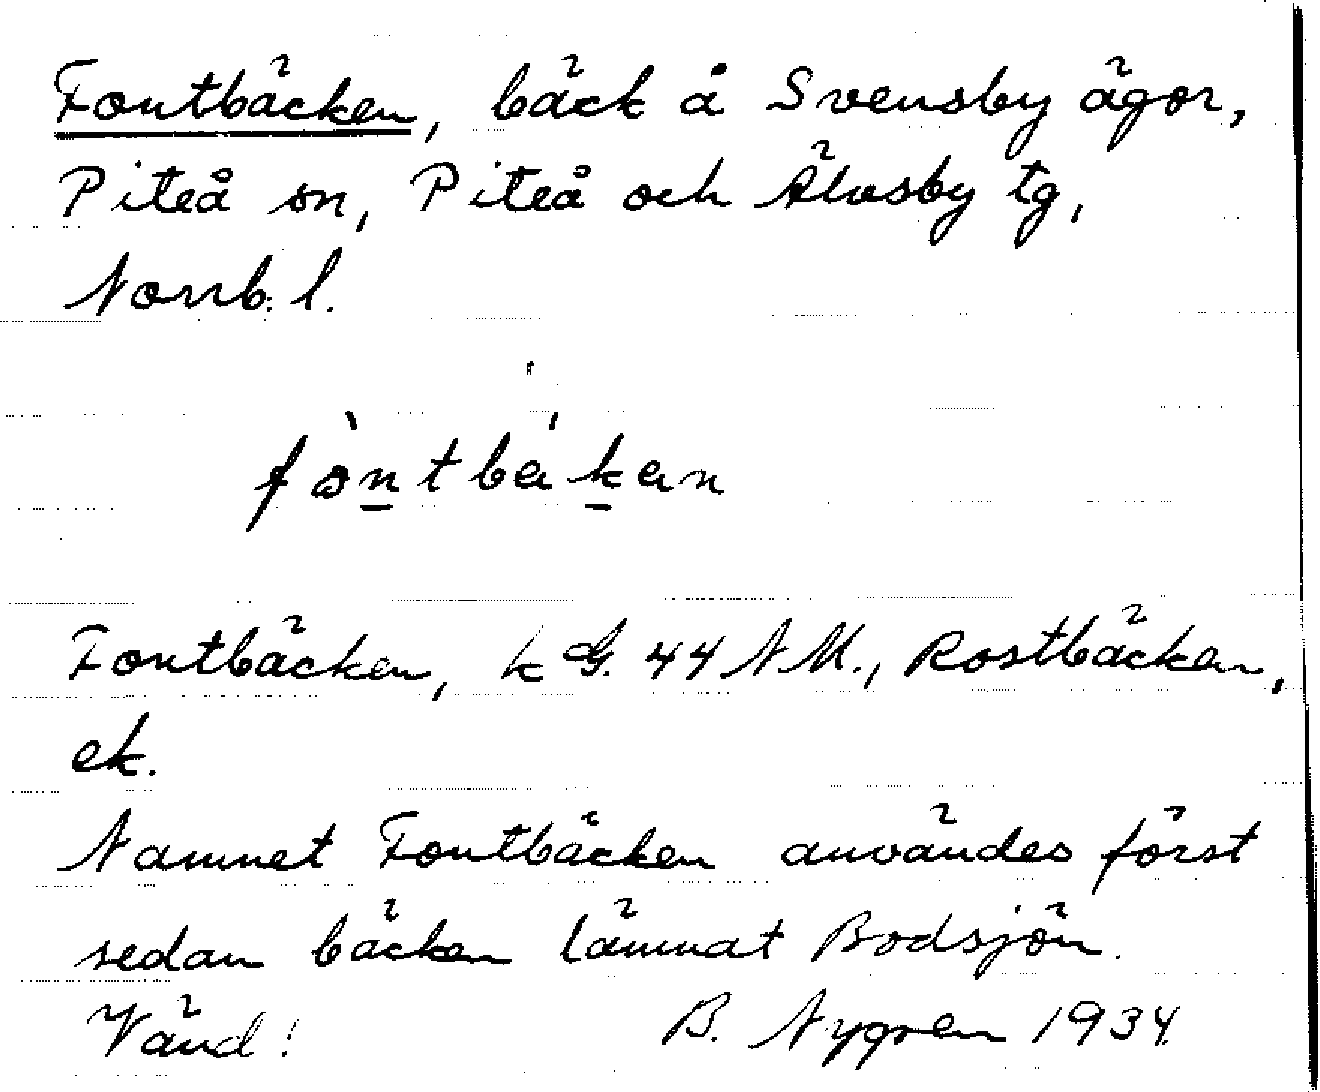 Fontbäcken, bäck å Svensby ägor,
Piteå sn, Piteå och Älvsby tg,
Norrb. l.
fòntbäken
Fontbäcken, k G. 44 NM., Rostbäcken,
ek.
Namnet Fontbäcken användes först
sedan bäcken lämnat Bodsjön.
Vänd! B. Nygren 1934.